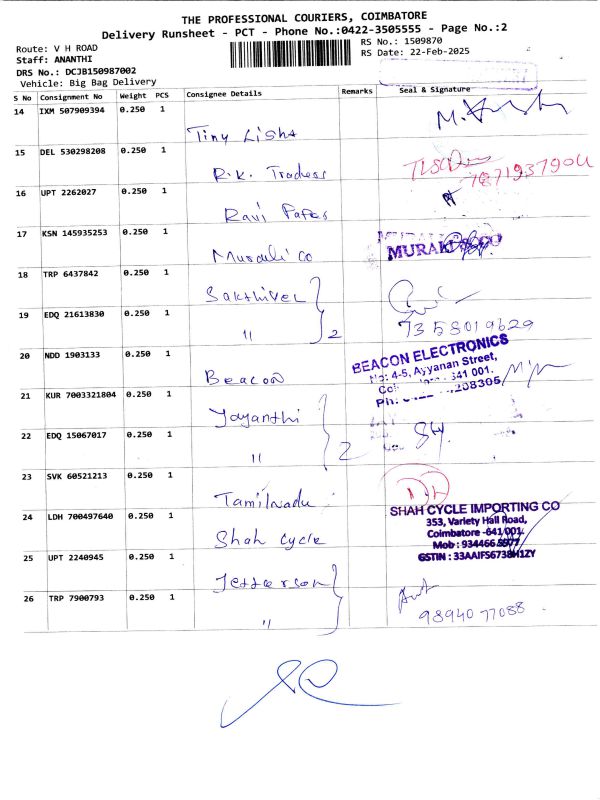 THE PROFESSIONAL COURIERS, COIMBATORE
Delivery Runsheet - PCT - Phone No.:0422-3505555 - Page No.:2
Route: V H ROAD
RS No.: 1509870
Staff: ANANTHI
RS Date: 22-Feb-2025
DRS No.: DCJB150987002
Vehicle: Big Bag Delivery
S No Consignment No Weight PCS Consignee Details Remarks Seal & Signature
14 IXM 507909394 0.250 1
Tiny Lisha
15 DEL 530298208 0.250 1
R.K. Traders
7871937904
16 UPT 2262027 0.250 1
Ravi
17 KSN 145935253 0.250 1
Murali co
MURALI & CO
18 TRP 6437842 0.250 1
Sakthivel
19 EDQ 21613830 0.250 1
" 2
7358019629
20 NDD 1903133 0.250 1
Beacon
BEACON ELECTRONICS
No: 4-5, Ayyanan Street,
641 001.
Ph:
21 KUR 7003321804 0.250 1
Jayanthi
22 EDQ 15067017 0.250 1
" 2
23 SVK 60521213 0.250 1
Tamilnadu
24 LDH 700497640 0.250 1
Shah Cycle
SHAH CYCLE IMPORTING CO
353, Variety Hall Road,
Coimbatore -641 001.
Mob : 934466
GSTIN : 33AAIFS6738H1ZY
25 UPT 2240945 0.250 1
Jefferson
26 TRP 7900793 0.250 1
"
9894077088